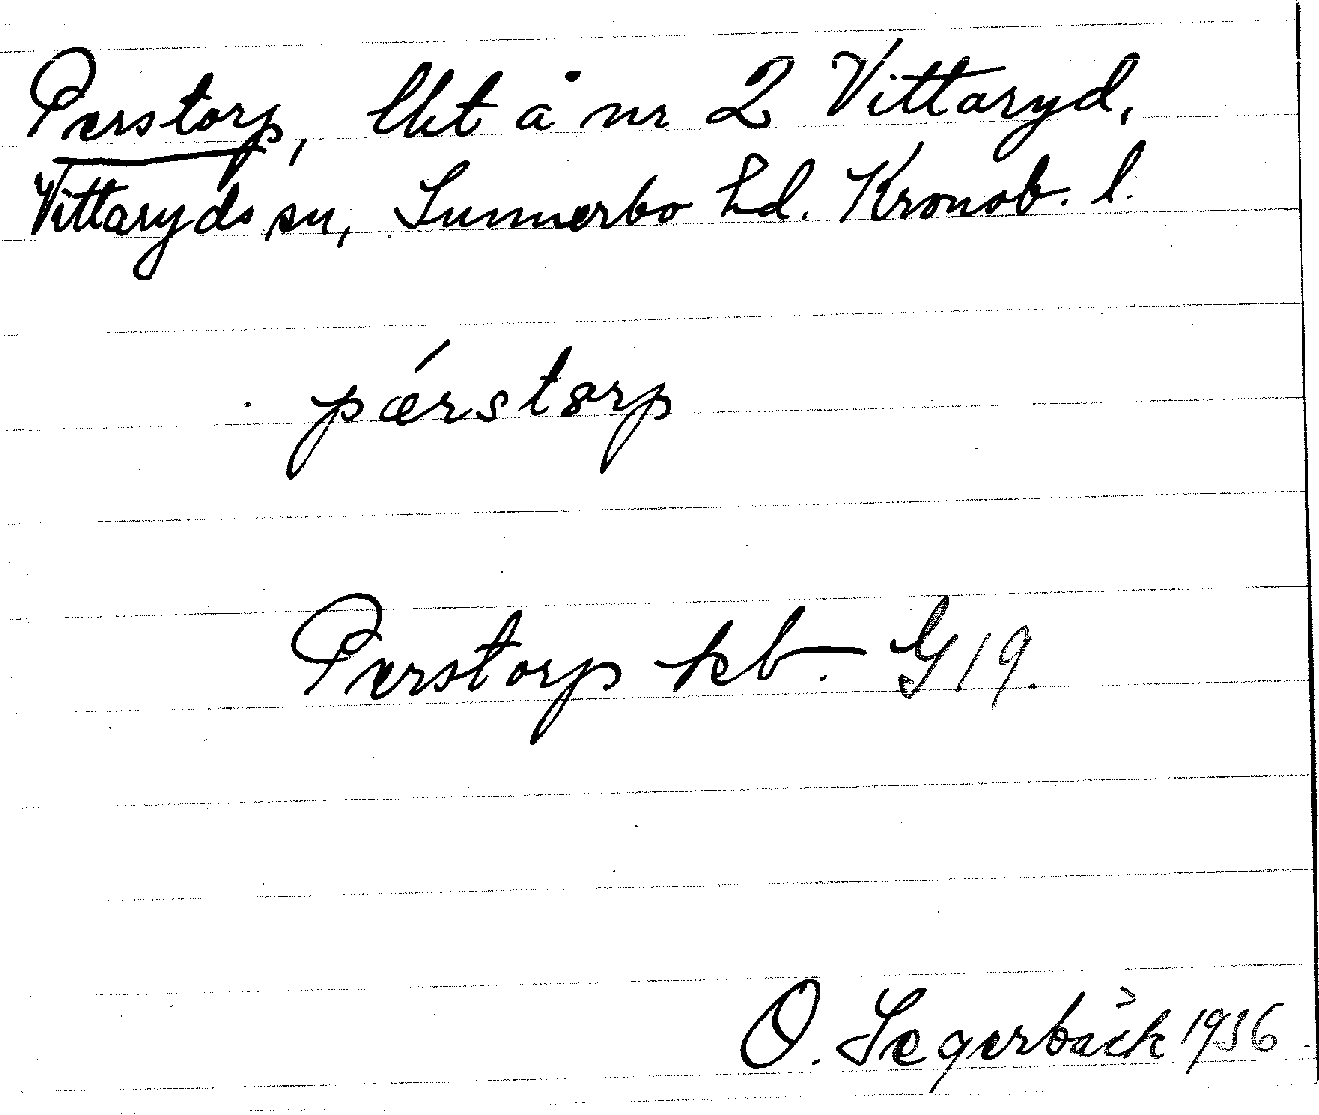 Perstorp, lht å nr 2 Vittaryd,
Vittaryds sn, Sunnerbo hd. Kronob. l.
pǽrstorp
Perstorp kb. G 19.
O. Segerbäck 1936